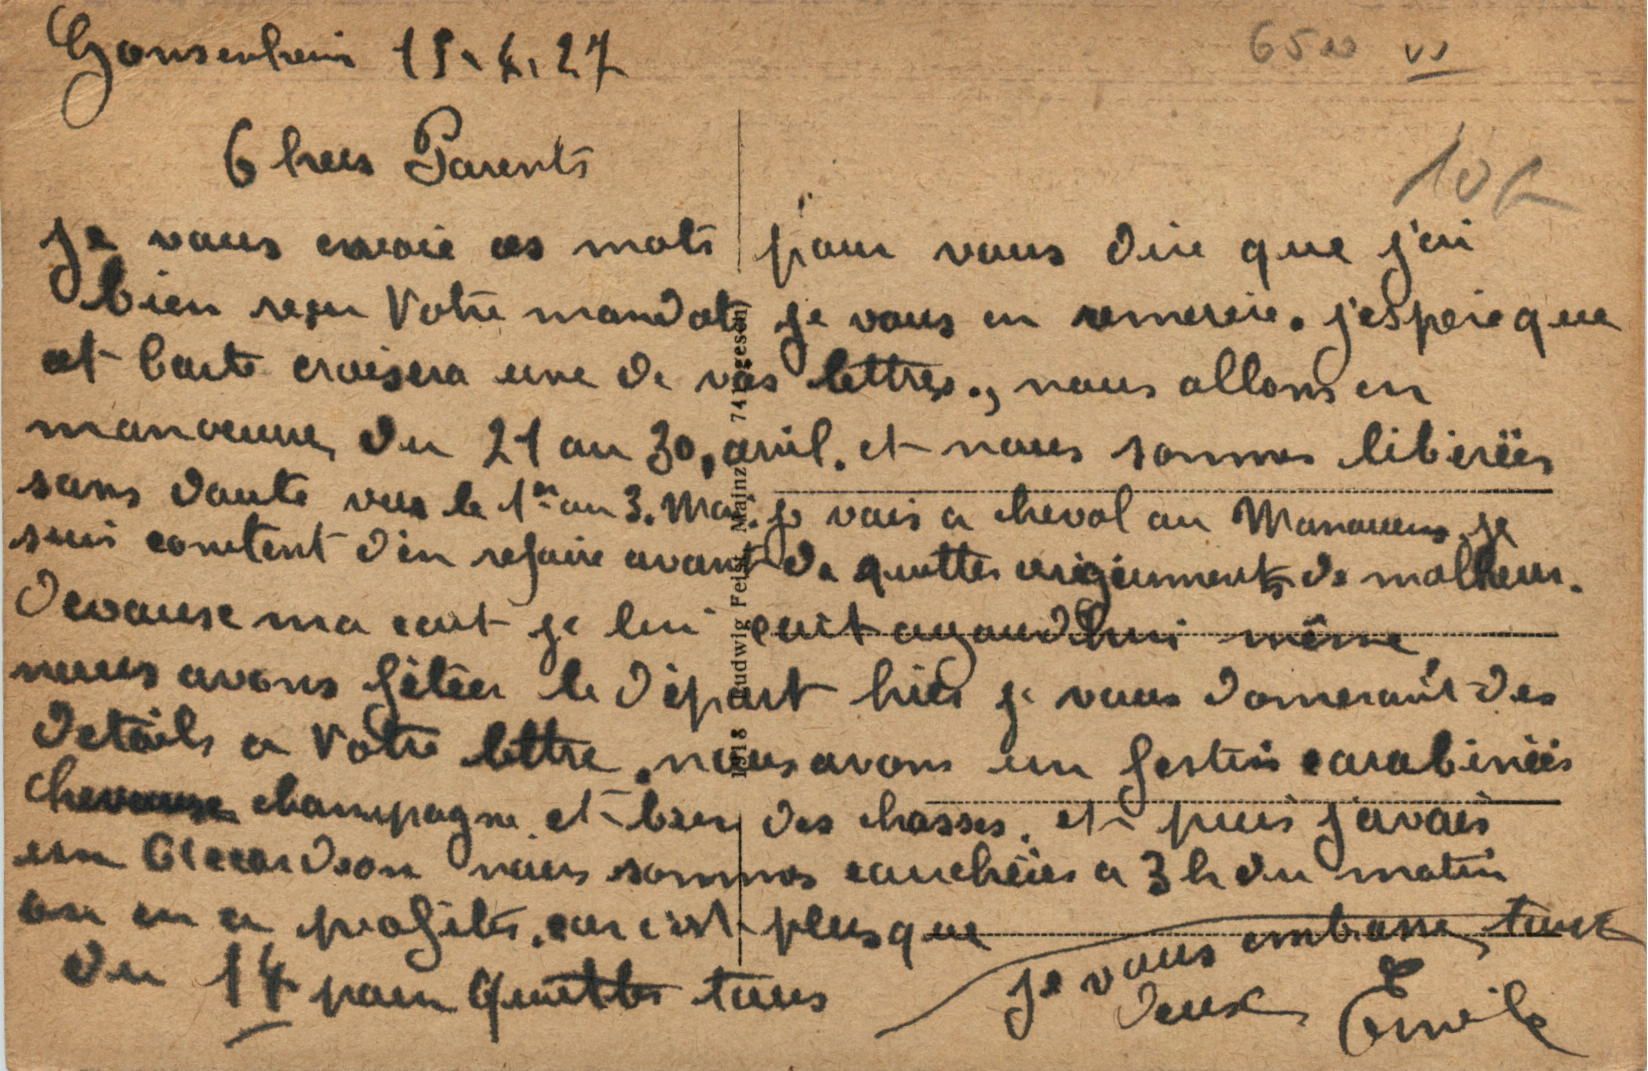 Gonsenheim 15.4.27
6500 vs
10f
Chers Parents
Je vous envoie ces mots pour vous dire que j'ai
bien reçu Votre mandat je vous en remercie. j'espere que
cet Carte croisera une de vos lettres., nous allons en
manoeuvre du 21 au 30, avril. et nous sommes libérées
sans doute vers le 1er au 3. Mai. je vais a cheval au Manoeuvres. je
suis content d'en refaire avant de quitter régiment de malheur.
Devause ma écrit je lui écrit aujourd'hui même
nous avons fêtées le départ hier je vous donnerait des
details a Votre lettre. nous avons un festin carabinées
champagne. et bien des chosses. et puis j'avais
un Accordeon nous sommes couchées a 3 h du matin
on en a profités. car c'est plus que
du 14 pour quitter tous
je vous embrasse tous
deux Emile
1918 Ludwig Feist, Mainz 741 gesch.